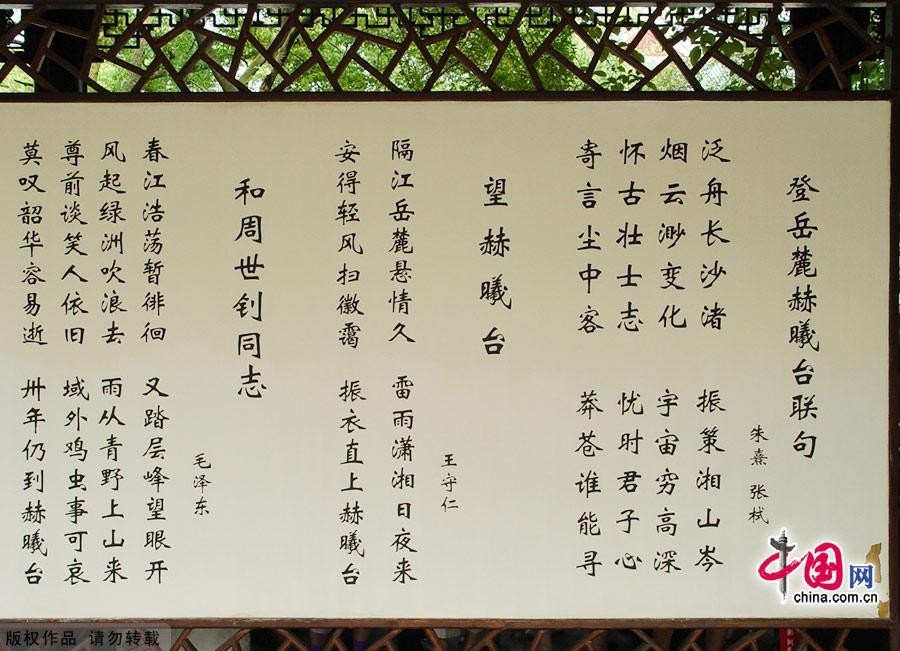 登岳麓赫曦台联句
朱熹 张栻
泛舟长沙渚 振策湘山岑
烟云渺变化 宇宙穷高深
怀古壮士志 忧时君子心
寄言尘中客 莽苍谁能寻
望赫曦台
王守仁
隔江岳麓悬情久 雷雨潇湘日夜来
安得轻风扫微霭 振衣直上赫曦台
和周世钊同志
毛泽东
春江浩荡暂徘徊 又踏层峰望眼开
风起绿洲吹浪去 雨从青野上山来
尊前谈笑人依旧 域外鸡虫事可哀
莫叹韶华容易逝 卅年仍到赫曦台
中国网
china.com.cn
版权作品 请勿转载